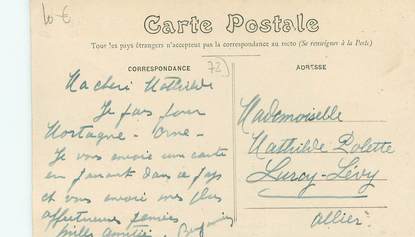 10-€
Carte Postale
Tous les pays étrangers n'acceptent pas la correspondance au recto (Se renseigner à la Poste)
CORRESPONDANCE
72)
ADRESSE
Ma cheri Mathilde
Je pars pour
Mortagne - Orne -
Je vous envoie une carte
en passant dans ce pays
et vous envoie mes plus
affectueuses pensées
mille amitiés.
Mademoiselle
Mathilde Polette
Lurcy-Lévy
Allier